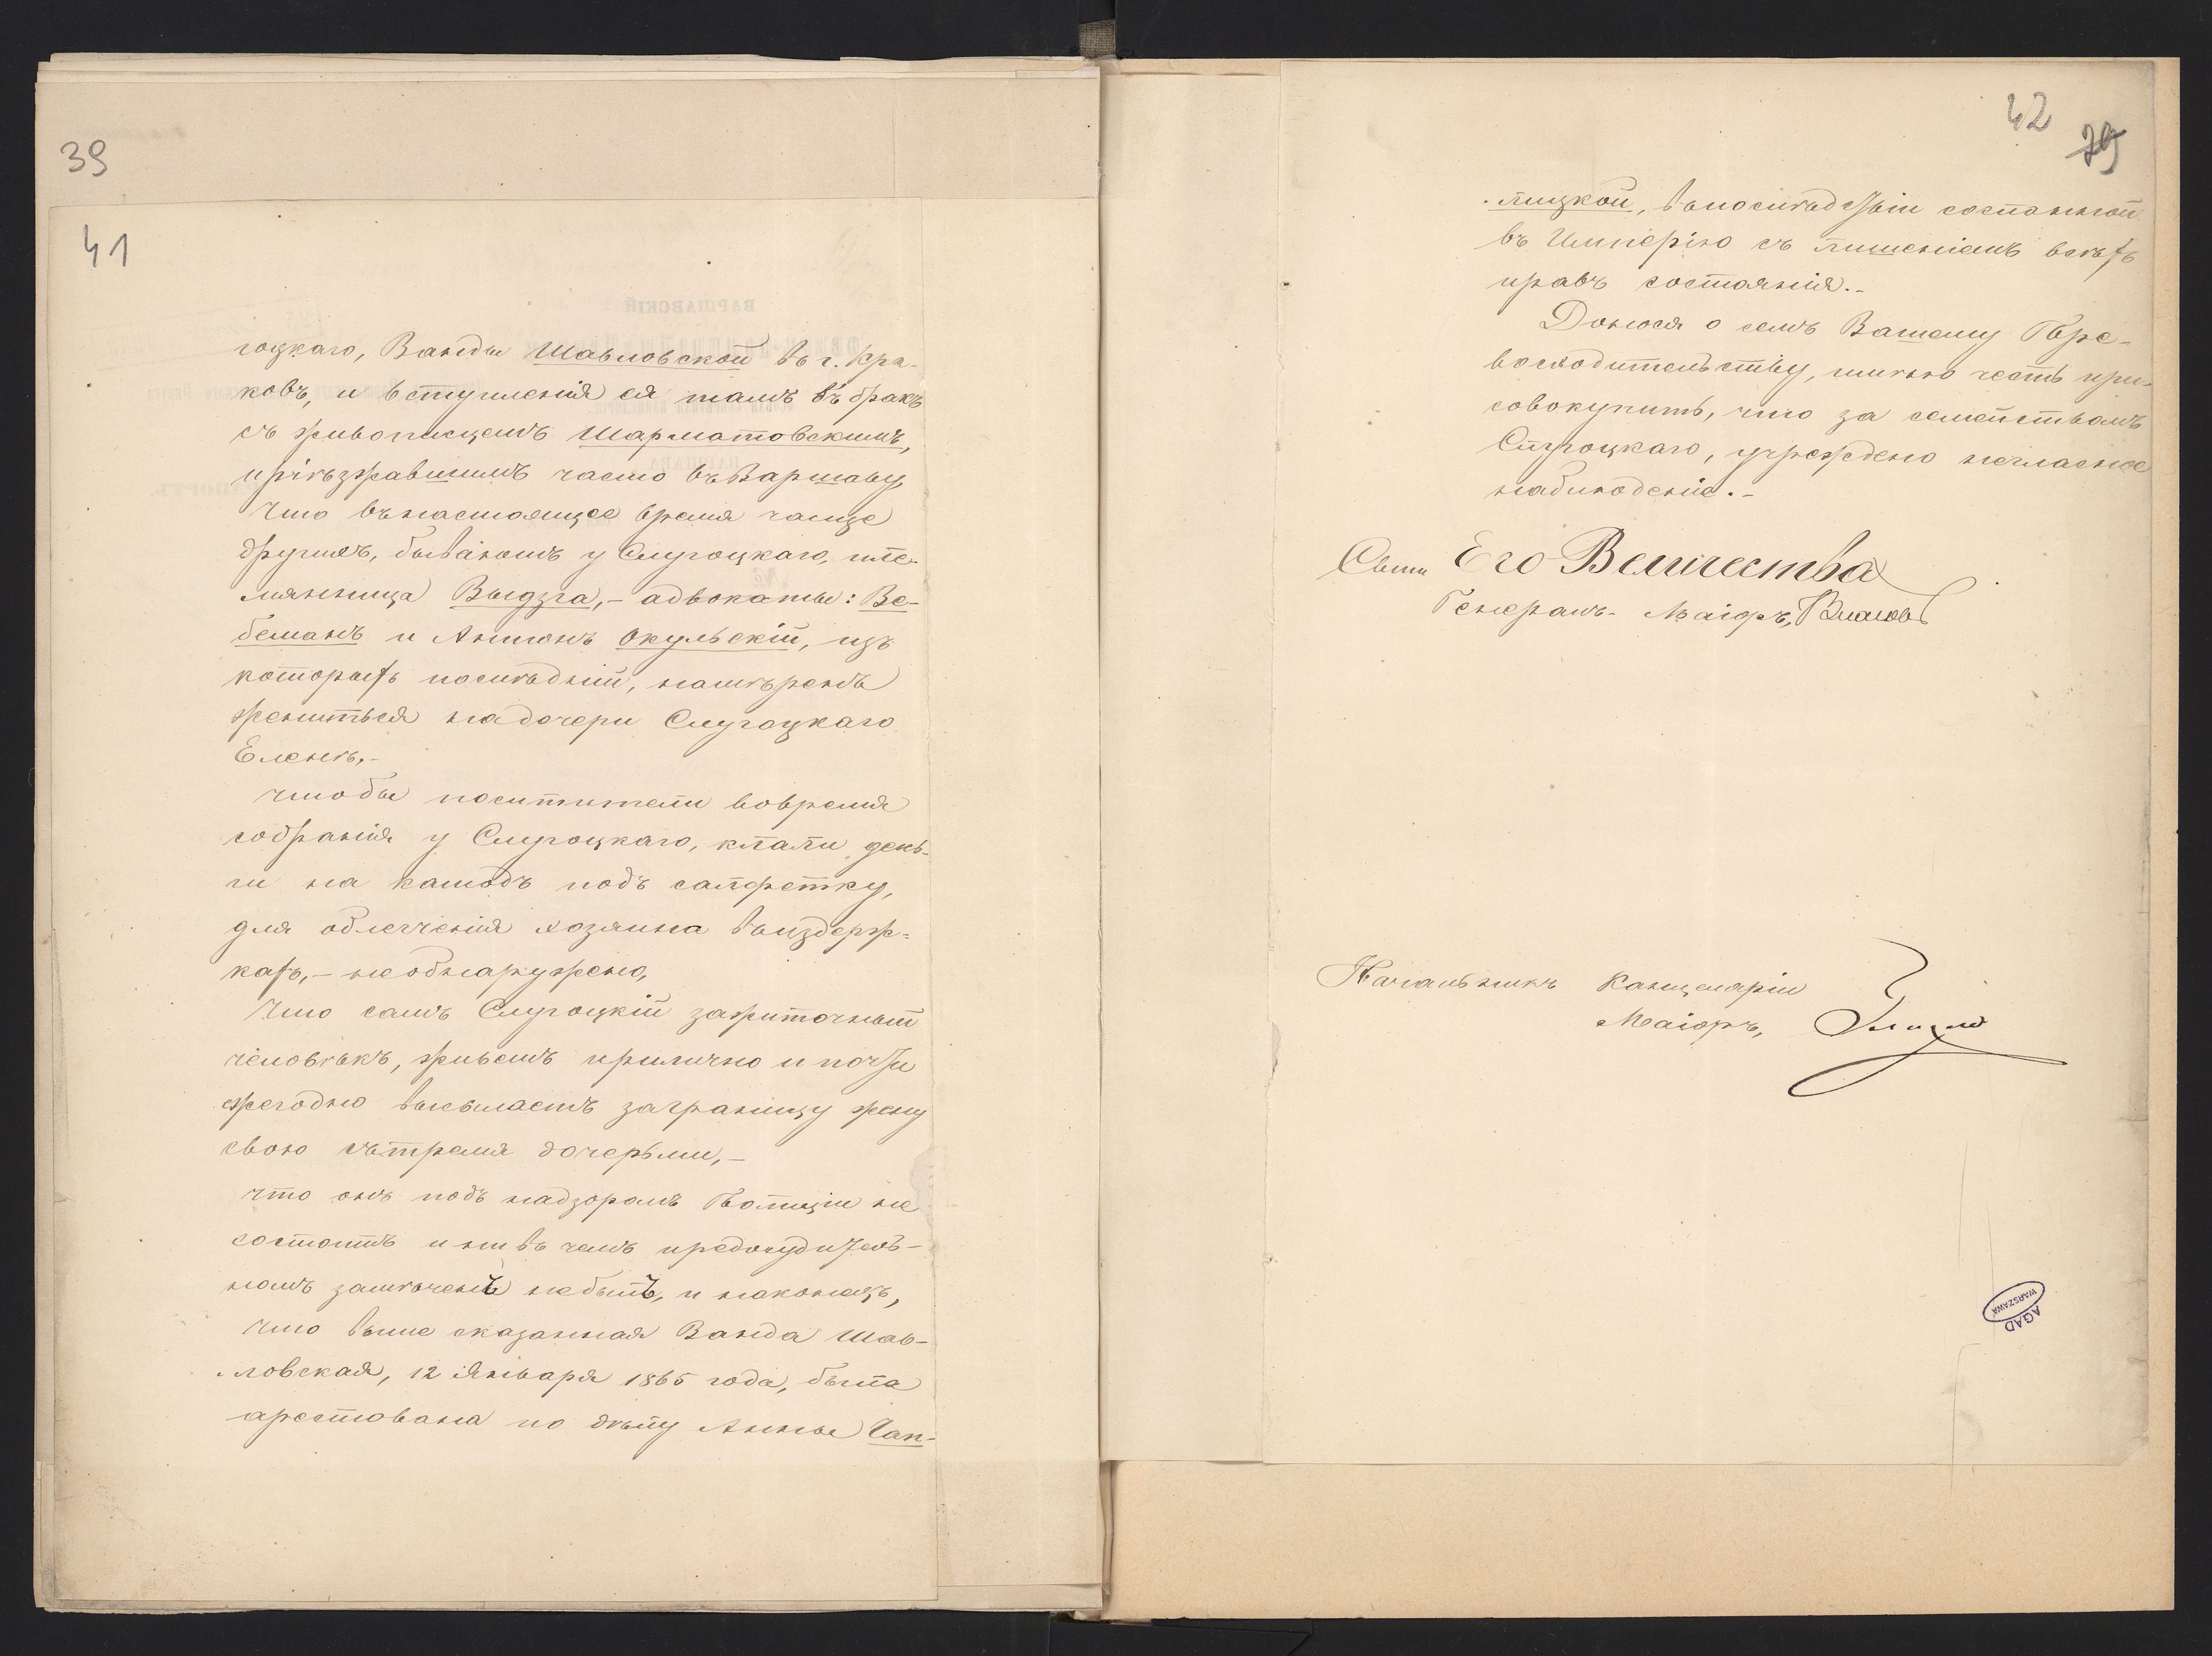 39
41
гоцкаго, Ванды Шавловской въ г. Кра-
ковѣ, и вступленія ея тамъ въ бракъ
съ живописцемъ Шарматовскимъ,
пріѣзжавшимъ часто въ Варшаву,
Что въ настоящее время чаще
другихъ, бываютъ у Слугоцкаго, пле-
мянница Выдзга, – адвокаты: Ве-
беманъ и Антонъ Окульскій, изъ
которыхъ послѣдній, намѣренъ
жениться на дочери Слугоцкаго
Еленѣ, –
чтобы посѣтители во время
собранія у Слугоцкаго, клали день-
ги на камодъ подъ салфетку,
для облегченія хозяина въ издерж-
кахъ, – не обнаружено,
Что самъ Слугоцкій зажиточный
человѣкъ, живетъ прилично и почти
ежегодно высылаетъ заграницу жену
свою съ тремя дочерьми, –
что онъ подъ надзоромъ Полиціи не
состоитъ и ни въ чемъ предосудитель-
номъ замѣченъ не былъ, и наконецъ,
Что выше сказанная Ванда Шав-
ловская, 12 Января 1865 года, была
арестована по дѣлу Анны Чап-
42
39
лицкой, въ послѣдствіи сосланной
въ Имперію съ лишеніемъ всѣхъ
правъ состоянія. –
Донося о семъ Вашему Пре-
восходительству, имѣю честь при-
совокупить, что за семействомъ
Слугоцкаго, учреждено негласное
наблюденіе. –
Свиты Его Величества
Генералъ-Маіоръ, Власовъ
Начальникъ Канцеляріи
Маіоръ,
AGAD
WARSZAWA